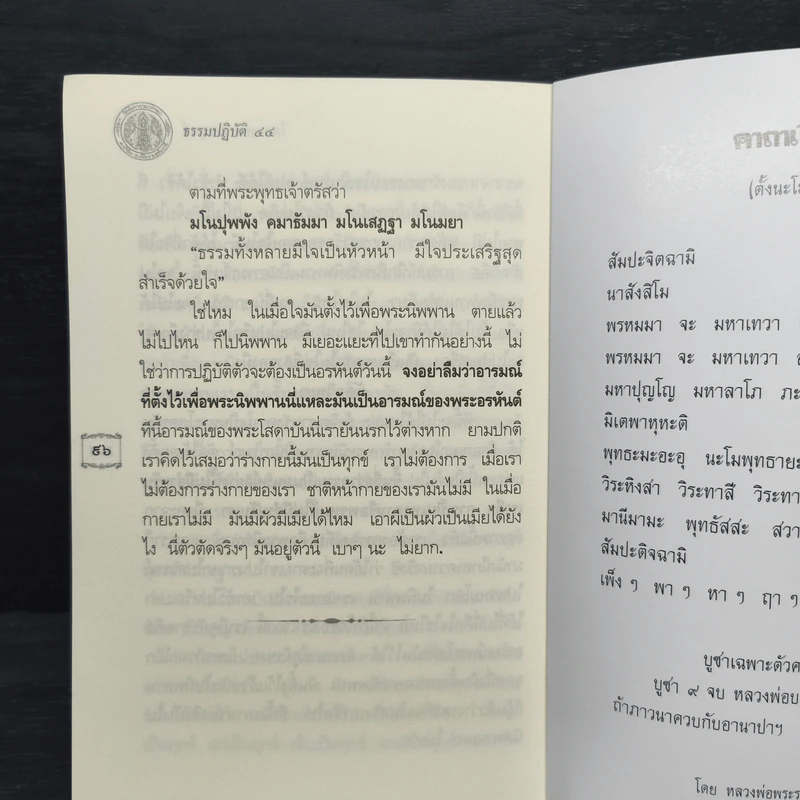 ธรรมปฏิบัติ ๔๔
ตามที่พระพุทธเจ้าตรัสว่า
มโนปุพพัง คมาธัมมา มโนเสฏฐา มโนมยา
“ธรรมทั้งหลายมีใจเป็นหัวหน้า มีใจประเสริฐสุด
สำเร็จด้วยใจ”
ใช่ไหม ในเมื่อใจมันตั้งไว้เพื่อพระนิพพาน ตายแล้ว
ไม่ไปไหน ก็ไปนิพพาน มีเยอะแยะที่ไปเขาทำกันอย่างนี้ ไม่
ใช่ว่าการปฏิบัติตัวจะต้องเป็นอรหันต์วันนี้ จงอย่าลืมว่าอารมณ์
ที่ตั้งไว้เพื่อพระนิพพานนี่แหละมันเป็นอารมณ์ของพระอรหันต์
ทีนี้อารมณ์ของพระโสดาบันนี่เรายันนรกไว้ต่างหาก ยามปกติ
เราคิดไว้เสมอว่าร่างกายนี้มันเป็นทุกข์ เราไม่ต้องการ เมื่อเรา
ไม่ต้องการร่างกายของเรา ชาติหน้ากายของเรามันไม่มี ในเมื่อ
กายเราไม่มี มันมีผัวมีเมียได้ไหม เอาผีเป็นผัวเป็นเมียได้ยัง
ไง นี่ตัวตัดจริงๆ มันอยู่ตัวนี้ เบาๆ นะ ไม่ยาก.
๕๖
คาถาเ
(ตั้งนะโม
สัมปะจิตฉามิ
นาสังสิโม
พรหมมา จะ มหาเทวา
พรหมมา จะ มหาเทวา
มหาปุญโญ มหาลาโภ ภะ
มิเตพาหุหะติ
พุทธะมะอะอุ นะโมพุทธายะ
วิระหิงสา วิระทาสี วิระทา
มานีมามะ พุทธัสสะ สวา
สัมปะติจฉามิ
เพ็ง ๆ พา ๆ หา ๆ ฤา ๆ
บูชาเฉพาะตัวค
บูชา ๙ จบ หลวงพ่อบ
ถ้าภาวนาควบกับอานาปาฯ
โดย หลวงพ่อพระร